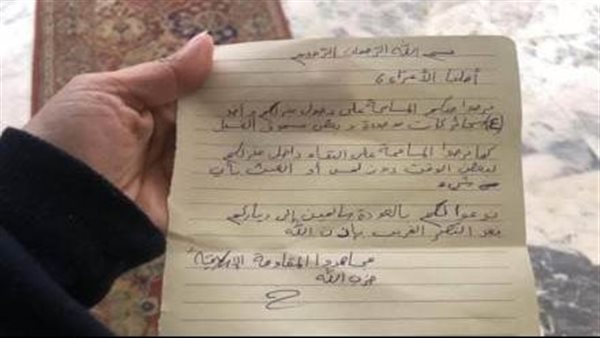 بسم الله الرحمن الرحيم
أهلنا الأعزاء،
نرجوا منكم المسامحة على دخول منزلكم وأخذ
(٤) موجودة وبعض مسحوق الغسيل
كما نرجوا المسامحة على البقاء داخل منزلكم
لبعض الوقت دون لمس أو العبث بأي
شيء
ندعوا لكم بالعودة سالمين إلى دياركم
بعد النصر القريب بإذن الله
مجاهدوا المقاومة الإسلامية
حزب الله